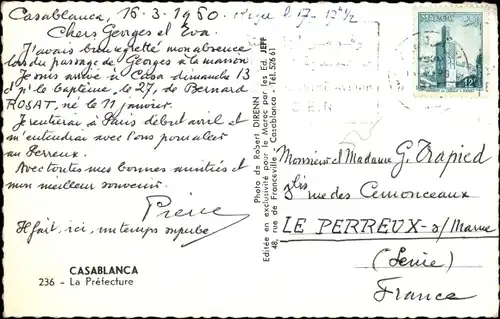 Casablanca, 16-3-1960
Chers Georges et Eva.
J'avais bien regretté mon absence
lors du passage de Georges à la maison
Je suis arrivé à Casa dimanche 13
le baptême, le 27, de Bernard
ROSAT, né le 11 janvier.
Je rentrerai à Paris début avril et
m'entendrai avec vous pour aller
au Perreux.
Avec toutes mes bonnes amitiés et
mon meilleur souvenir.
Pierre
Il fait, ici, un temps superbe
CASABLANCA
236 - La Préfecture
Photo de Robert DIRENN
Editée en exclusivité pour le Maroc par les Ed. JEFF
48, rue de Franceville - Casablanca - Tél. 526 61
MAROC
12F
Monsieur et Madame G. Trapied
rue des
LE PERREUX-s/Marne
(Seine)
France